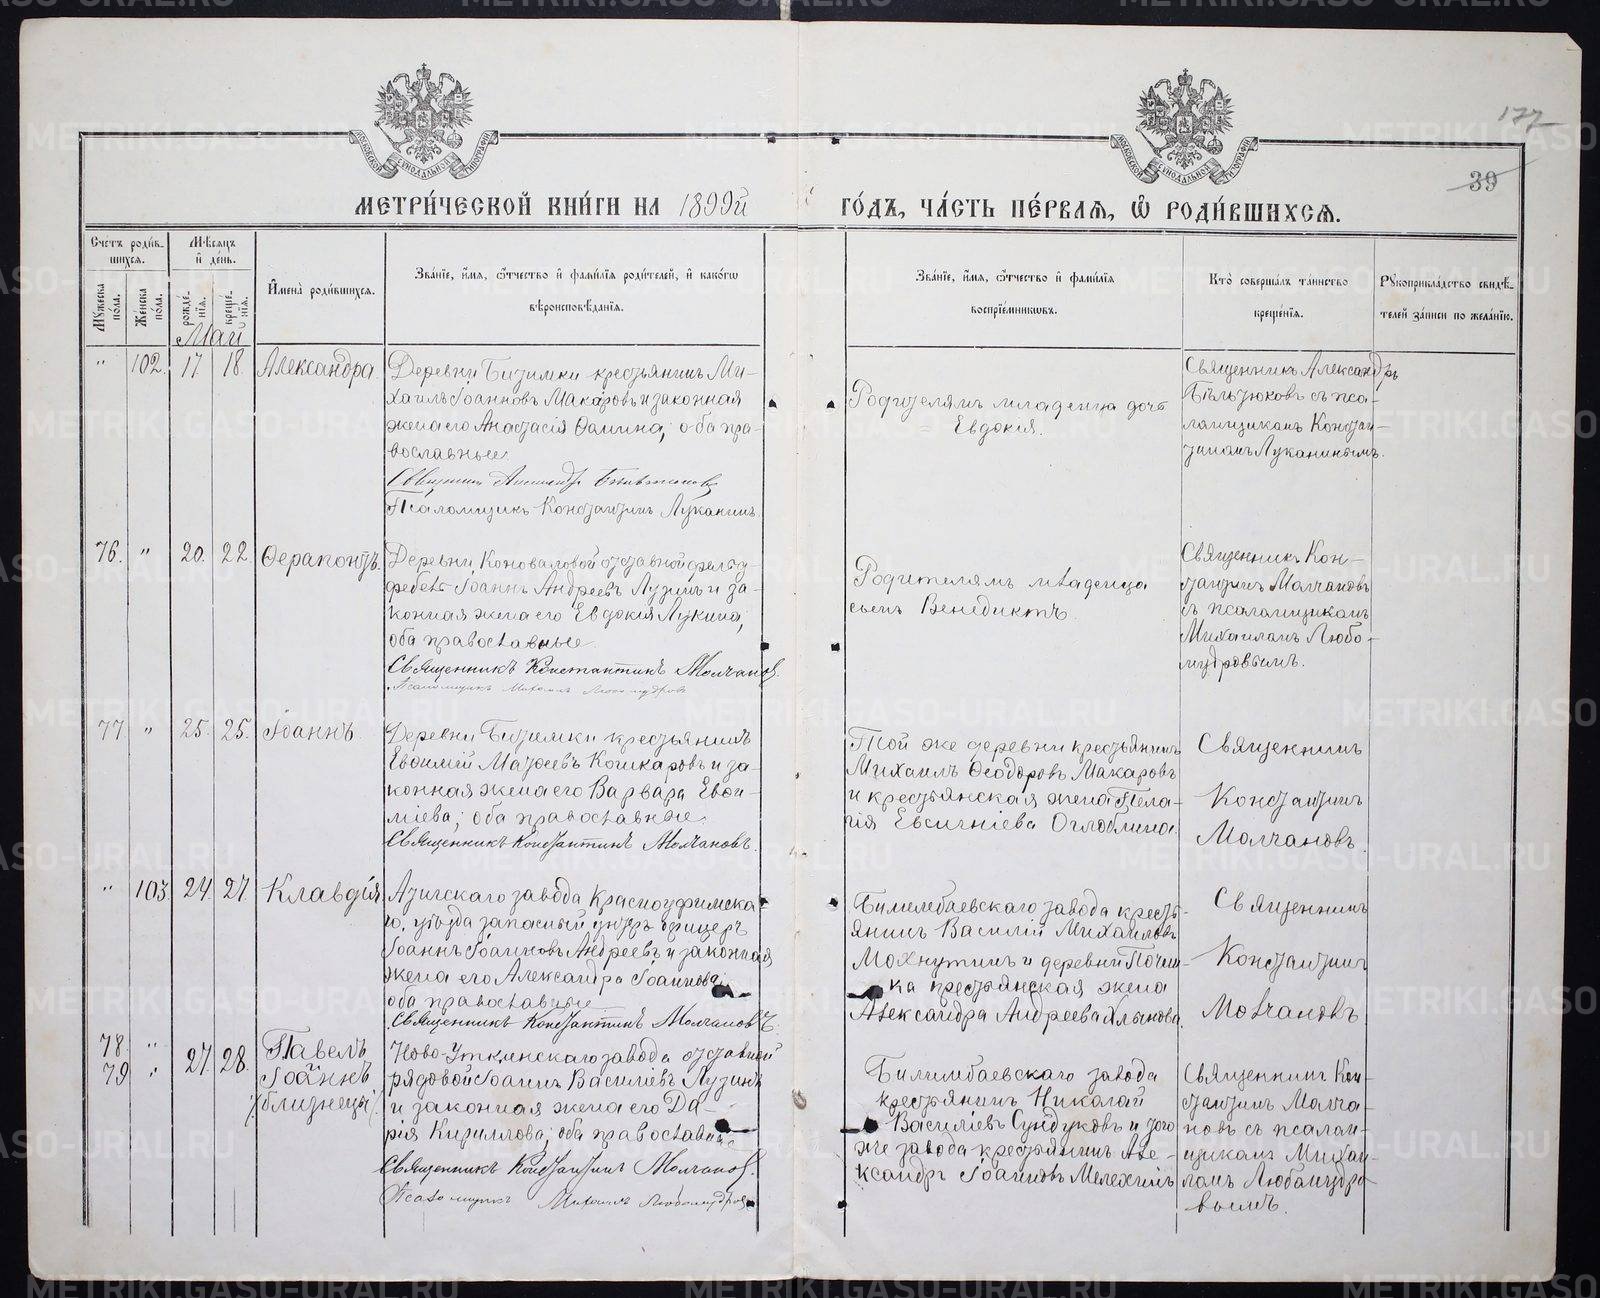 177
39
МЕТРИ́ЧЕСКОЙ КНИ́ГИ НА 1899й ГО́ДЪ, ЧА́СТЬ ПЕ́РВАѦ, Ѽ РОДИ́ВШИХСѦ.
Сче́тъ роди́в-
шихсѧ.
Мꙋ́жеска по́ла.
Же́нска по́ла.
Мѣ́сѧцъ
и҆ де́нь.
рожде́-
нїѧ.
креще́-
нїѧ.
И҆мена̀ роди́вшихсѧ.
Зва́нїе, и҆́мѧ, ѻ҆́тчество и҆ фами́лїѧ роди́телей, и҆ како́гѡ
вѣроисповѣ́данїѧ.
Зва́нїе, и҆́мѧ, ѻ҆́тчество и҆ фами́лїѧ
воспрїе́мникѡвъ.
Кто̀ соверша́лъ та́инство
креще́нїѧ.
Рꙋкоприкла́дство свидѣ́-
телей за́писи по жела́нїю.
Май
" 102. 17. 18. Александра.
Деревни Битимки крестьянинъ Ми-
хаилъ Іоанновъ Макаровъ и законная
жена его Анастасія Ѳомина, оба пра-
вославные
Священникъ Александръ Бѣльтюковъ
Псаломщикъ Константинъ Луканинъ.
Родителямъ младенца дочь
Евдокія.
Священникъ Александръ
Бѣльтюковъ съ пса-
ломщикомъ Констан-
тиномъ Луканинымъ.
76. " 20. 22. Ѳерапонтъ.
Деревни Коноваловой отставной фельд-
фебель Іоаннъ Андреевъ Лузинъ и за-
конная жена его Евдокія Лукина,
оба православные
Священникъ Константинъ Молчановъ.
Псаломщикъ Михаилъ Любомудровъ
Родителямъ младенца
сынъ Венедиктъ.
Священникъ Кон-
стантинъ Молчановъ
съ псаломщикомъ
Михаиломъ Любо-
мудровымъ.
77 " 25. 25. Іоаннъ
Деревни Битимки крестьянинъ
Евѳимій Матѳеевъ Кошкаровъ и за-
конная жена его Варвара Евѳи-
міева, оба православные.
Священникъ Константинъ Молчановъ.
Той же деревни крестьянинъ
Михаилъ Ѳеодоровъ Макаровъ
и крестьянская жена Пела-
гія Евсигніева Оглоблина.
Священникъ
Константинъ
Молчановъ.
" 103. 24. 27. Клавдія
Ачитскаго завода Красноуфимска-
го уѣзда запасный унтеръ офицеръ
Іоаннъ Іоанновъ Андреевъ и законная
жена его Александра Іоаннова,
оба православные
Священникъ Константинъ Молчановъ
Билимбаевскаго завода кресть-
янинъ Василій Михайловъ
Мохнуткинъ и деревни Почин-
ка крестьянская жена
Александра Андреева Клыкова.
Священникъ
Константинъ
Молчановъ
78 " 27. 28. Павелъ
79 " Іоаннъ
/близнецы/
Ново-Уткинскаго завода отставной
рядовой Іоаннъ Василіевъ Лузинъ
и законная жена его Да-
рія Кириллова, оба православные
Священникъ Константинъ Молчановъ.
Псаломщикъ Михаилъ Любомудровъ
Билимбаевскаго завода
крестьянинъ Николай
Василіевъ Сундуковъ и того
же завода крестьянинъ Але-
ксандръ Іоанновъ Мелехинъ
Священникъ Кон-
стантинъ Молча-
новъ съ псалом-
щикомъ Михаи-
ломъ Любомудро-
вымъ.
METRIKI.GASO-URAL.RU